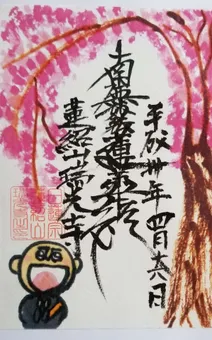 平成卅年四月
南無妙法蓮華経
蓮紹山瑞光寺